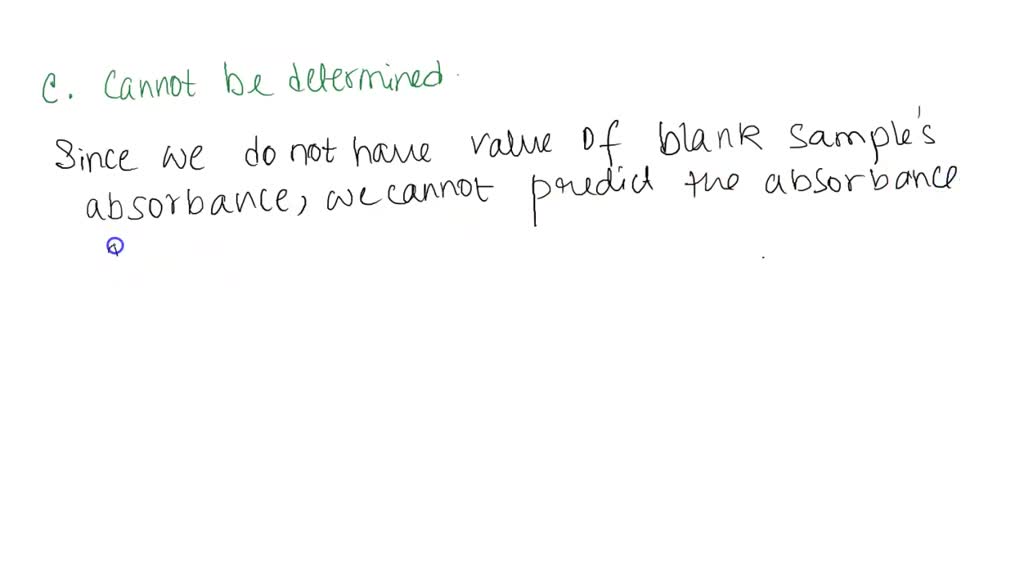 C. Cannot be determined.
Since we do not have value of blank sample's
absorbance, we cannot predict the absorbance